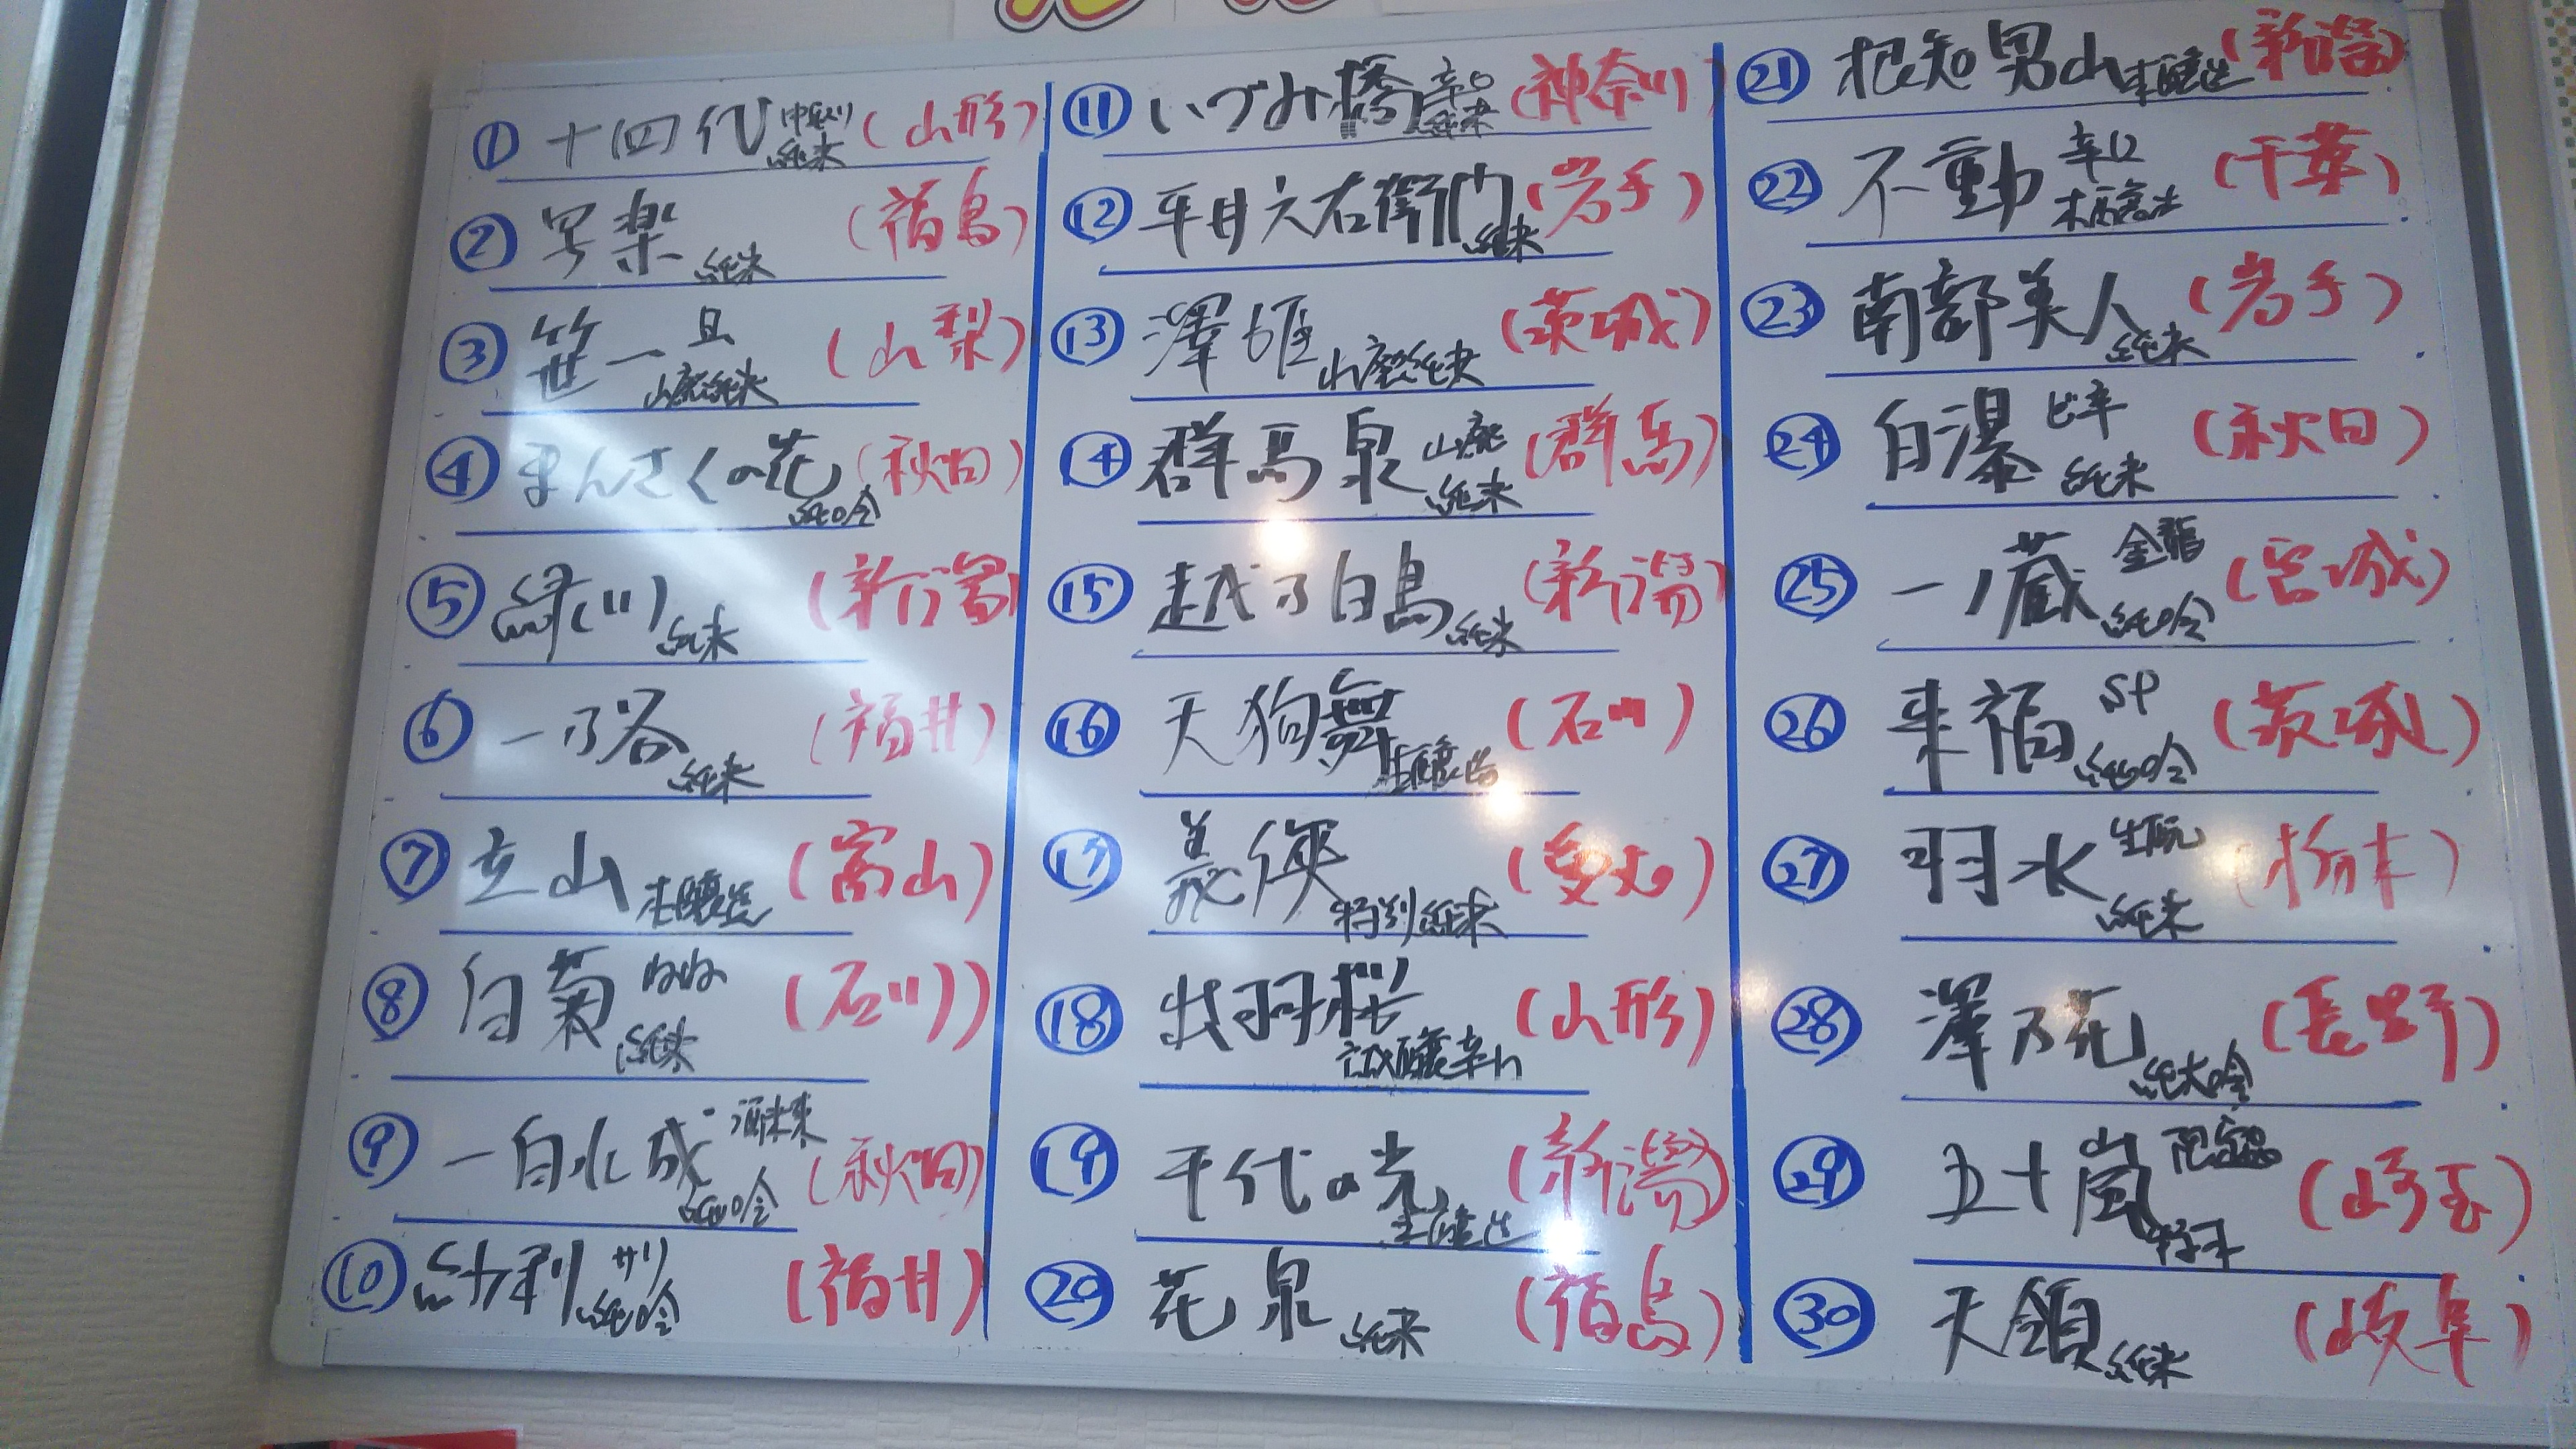 ① 十四代 中取り 純米 (山形)
② 写楽 純米 (福島)
③ 笹一 旦 山廃純米 (山梨)
④ まんさくの花 純吟 (秋田)
⑤ 緑川 純米 (新潟)
⑥ 一乃谷 純米 (福井)
⑦ 立山 本醸造 (富山)
⑧ 白菊 純米 (石川)
⑨ 一白水成 酒未来 純吟 (秋田)
⑩ 紗利 サリ 純吟 (福井)
⑪ いづみ橋 辛口 純米 (神奈川)
⑫ 平井六右衛門 純米 (岩手)
⑬ 澤姫 山廃純米 (茨城)
⑭ 群馬泉 山廃 純米 (群馬)
⑮ 越乃白鳥 純米 (新潟)
⑯ 天狗舞 (石川)
⑰ 義侠 特別純米 (愛知)
⑱ 出羽桜 誠醸辛口 (山形)
⑲ 千代の光 本醸造 (新潟)
⑳ 花泉 純米 (福島)
㉑ 根知男山 本醸造 (新潟)
㉒ 不動 辛口 本醸造 (千葉)
㉓ 南部美人 純米 (岩手)
㉔ 白瀑 ど辛 純米 (秋田)
㉕ 一ノ蔵 金龍 純吟 (宮城)
㉖ 来福 SP 純吟 (茨城)
㉗ 羽水 生酛 純米 (栃木)
㉘ 澤乃花 純大吟 (長野)
㉙ 五十嵐 (埼玉)
㉚ 天領 純米 (岐阜)